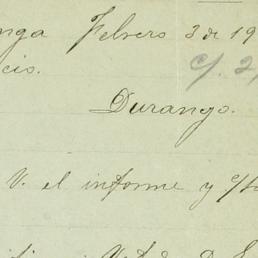 Febrero 3 de 19
cio. c/. 2
Durango.
V. el informe y c/
V.